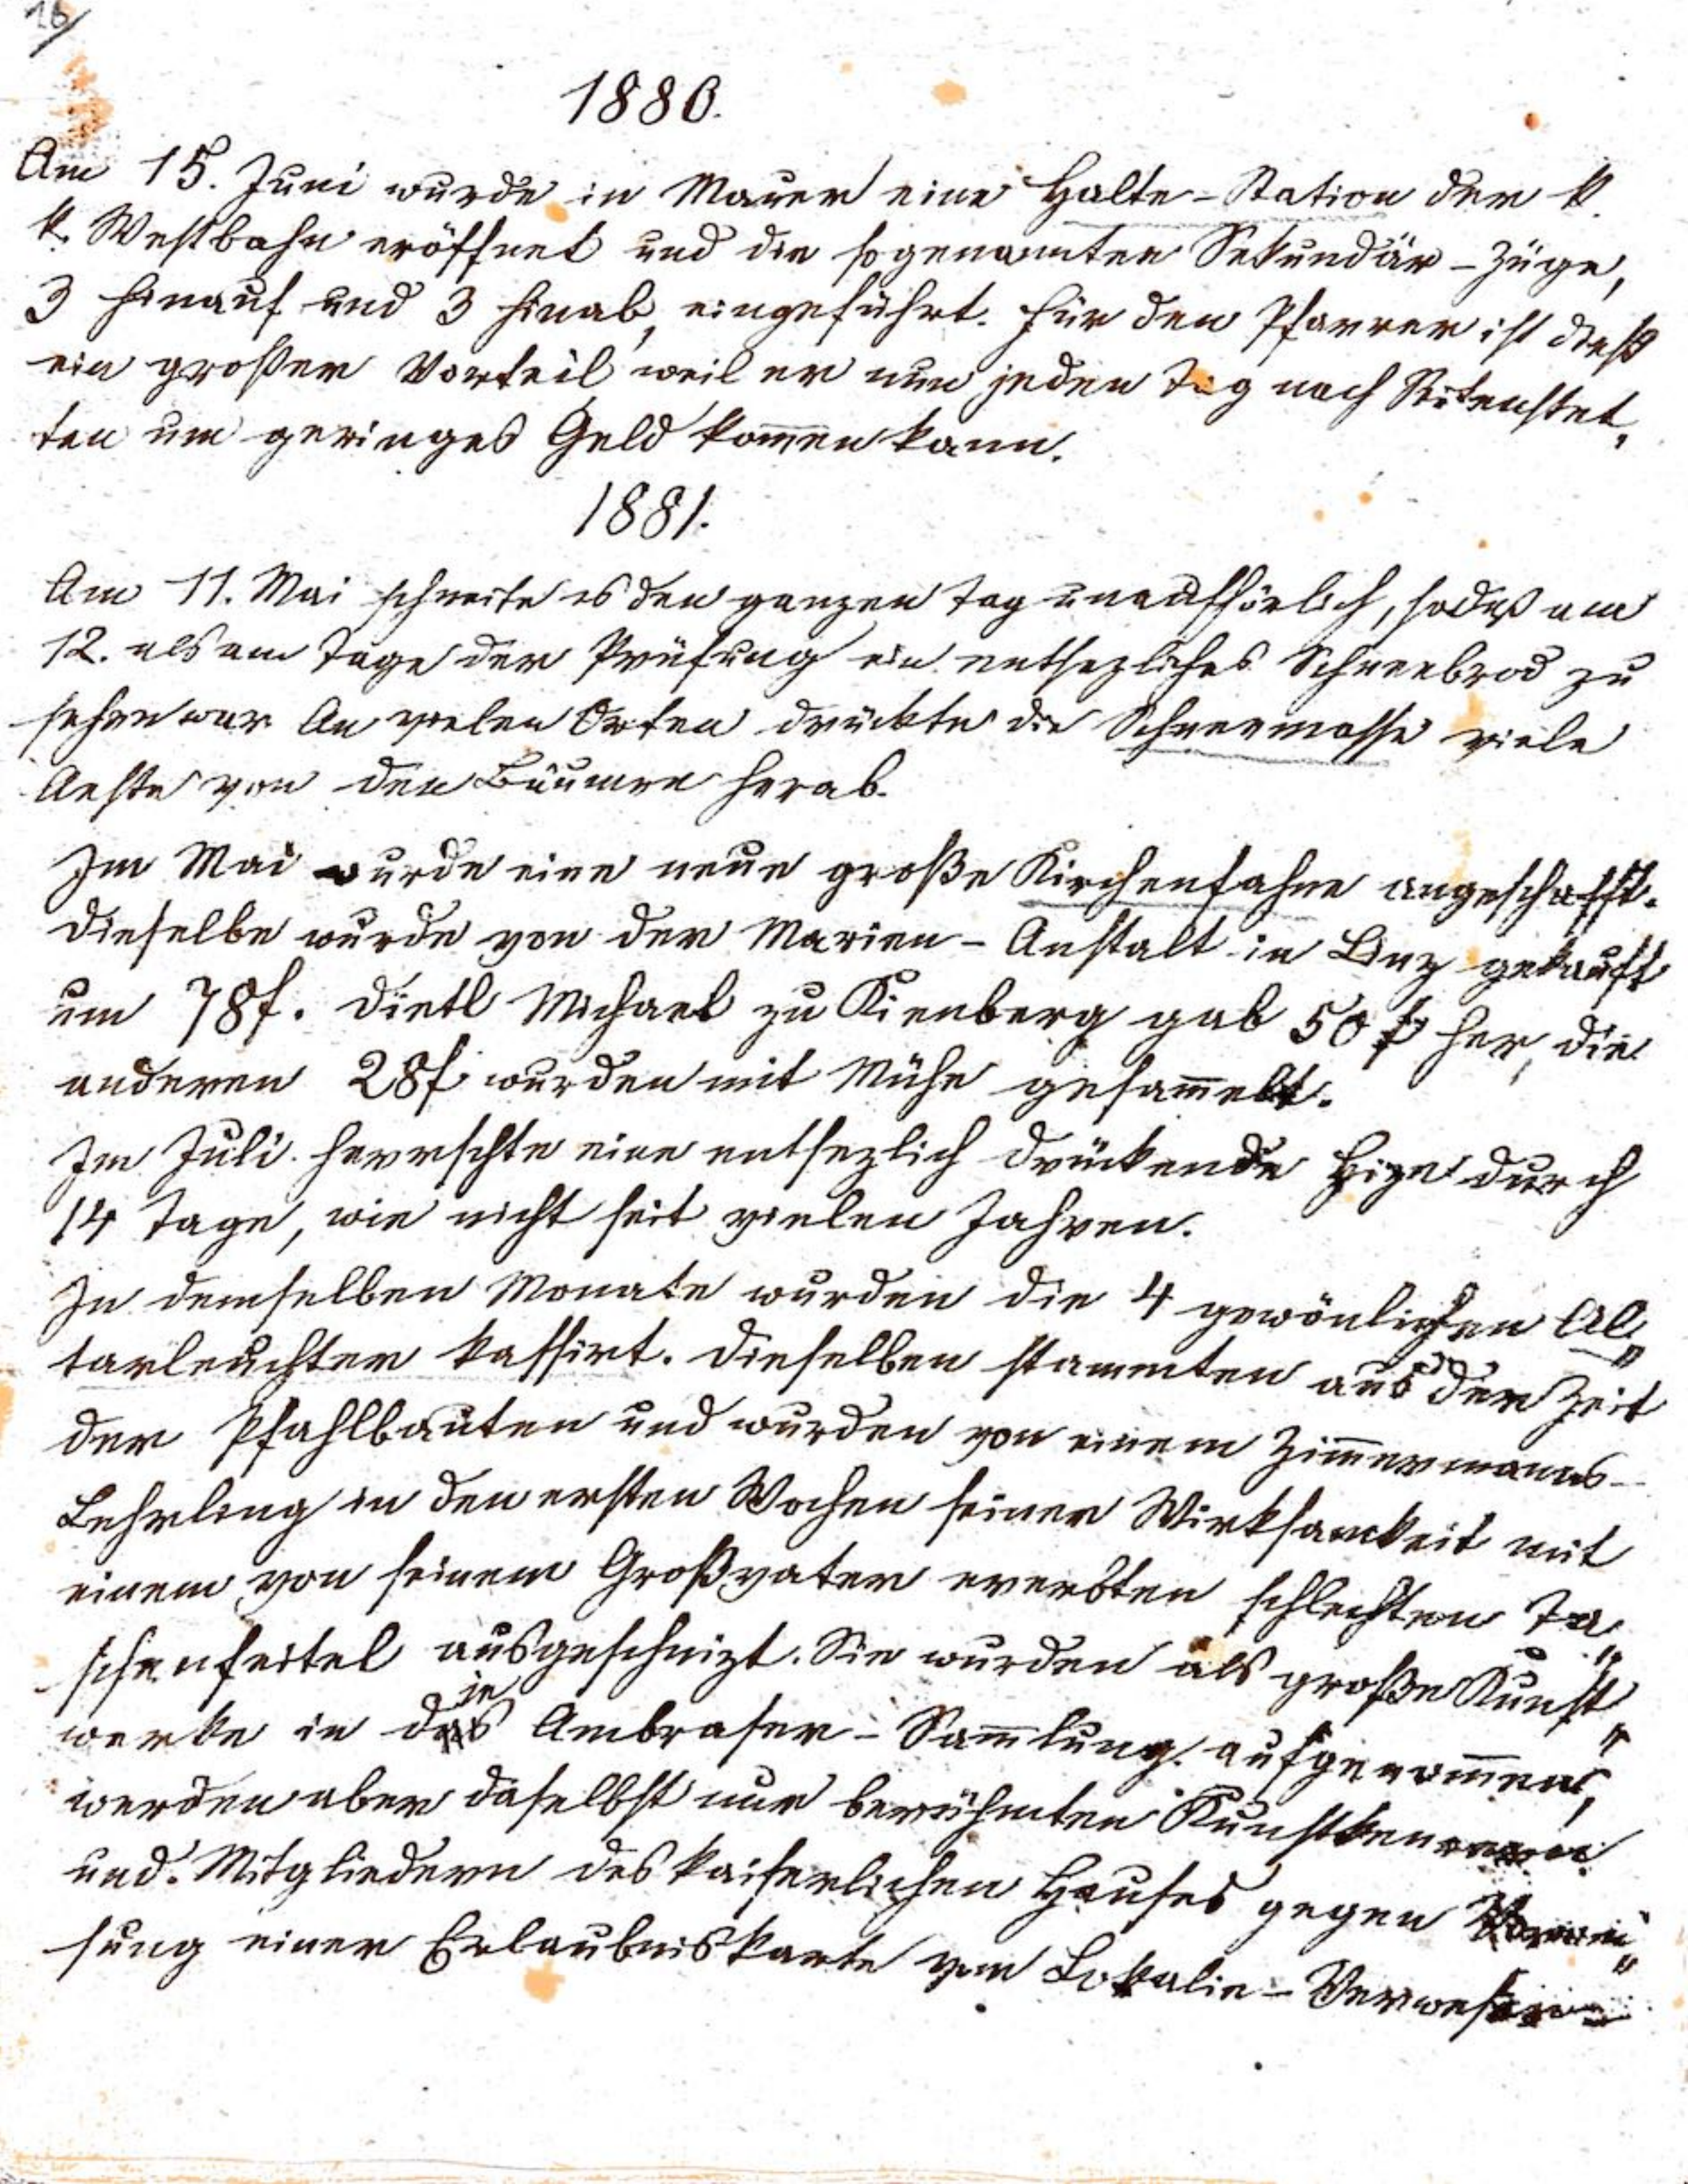 16/
1880.
Am 15. Juni wurde in Mauer eine Halte-Station der k.
k. Westbahn eröffnet und die sogenannten Sekundär-Züge,
3 hinauf und 3 hinab, eingeführt. Für den Pfarrer ist dieß
ein großer Vorteil weil er nun jeden Tag nach
ten um geringes Geld kom̅en kann.
1881.
Am 11. Mai schneite es den ganzen Tag unaufhörlich, sodaß am
12. als am Tage der Prüfung ein entsezliches Schneebrod zu
sehen war. An vielen Orten drückte die Schneemasse viele
Aeste von den Bäumen herab.
Im Mai wurde eine neue große Kirchenfahne angeschafft.
Dieselbe wurde von der Marien-Anstalt in Linz gekauft
um 78f. Dietl Michael zu Kienberg gab 50 f her, die
anderen 28f wurden mit Mühe gesam̅elt.
Im Juli herrschte eine entsezlich drückende Hize durch
14 Tage, wie nicht seit vielen Jahren.
In demselben Monate wurden die 4 gewönlichen Al„
tarleuchter kassirt. Dieselben stammten aus der Zeit
der Pfahlbauten und wurden von einem Zim̅ermanns-
Lehrling in den ersten Wochen seiner Wirksamkeit mit
einem von seinem Großvater ererbten schlechten Ta„
schenfeitel ausgeschnizt. Sie wurden als große Kunst„
werke in die Ambraser-Sam̅lung aufgenom̅en,
werden aber daselbst nur berühmten Kunstkennern
und Mitgliedern des kaiserlichen Hauses gegen
sung einer Erlaubniskarte vom Lokalie-Verweser